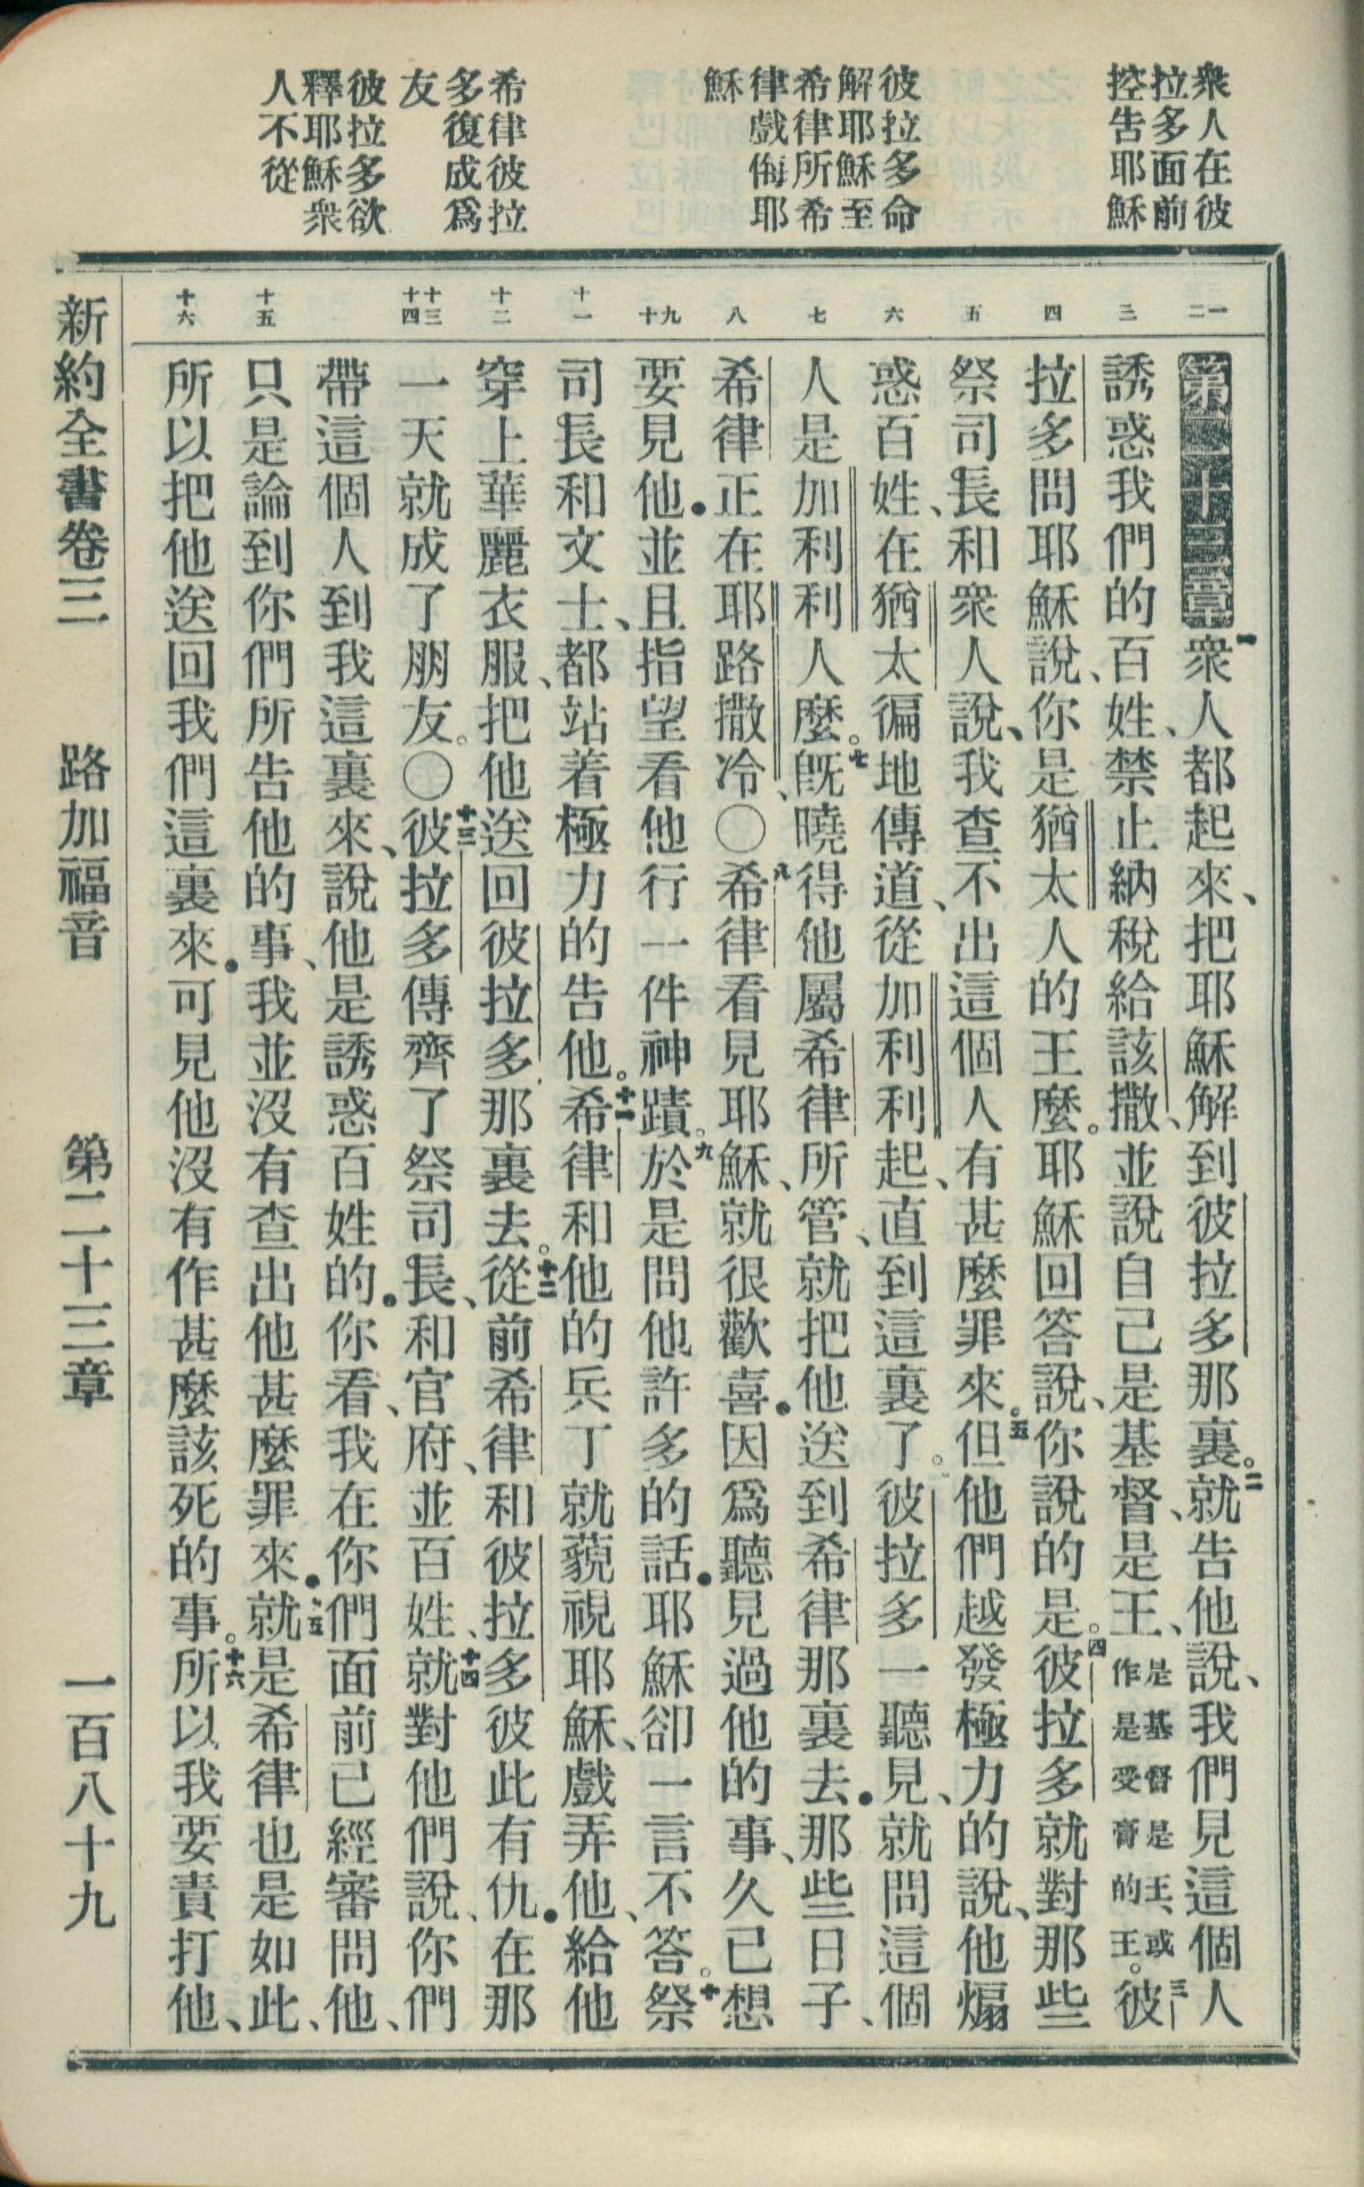 衆人在彼
拉多面前
控告耶穌
彼拉多命
解耶穌至
希律所希
律戲侮耶
穌
希律彼拉
多復成爲
友
彼拉多欲
釋耶穌衆
人不從
一二
三
四
五
六
七
八
九十
十一
十二
十三十四
十五
十六
第二十三章一衆人都起來、把耶穌解到彼拉多那裏。二就告他說、我們見這個人
誘惑我們的百姓、禁止納稅給該撒、並說自己是基督、是王、是基督是王、或作是受膏的王。三彼
拉多問耶穌說、你是猶太人的王麼。耶穌回答說、你說的是。四彼拉多就對那些
祭司長和衆人說、我查不出這個人有甚麼罪來。五但他們越發極力的說、他煽
惑百姓、在猶太徧地傳道、從加利利起、直到這裏了。彼拉多一聽見、就問這個
人是加利利人麼。七既曉得他屬希律所管、就把他送到希律那裏去．那些日子、
希律正在耶路撒冷、〇八希律看見耶穌、就很歡喜．因爲聽見過他的事、久已想
要見他．並且指望看他行一件神蹟。九於是問他許多的話．耶穌卻一言不答。十祭
司長和文士、都站着極力的告他。十一希律和他的兵丁就藐視耶穌、戲弄他、給他
穿上華麗衣服、把他送回彼拉多那裏去。十二從前希律和彼拉多彼此有仇．在那
一天就成了朋友。〇十三彼拉多傳齊了祭司長、和官府、並百姓、十四就對他們說、你們
帶這個人到我這裏來、說他是誘惑百姓的．你看、我在你們面前已經審問他、
只是論到你們所告他的事、我並沒有查出他甚麼罪來．十五就是希律也是如此、
所以把他送回我們這裏來．可見他沒有作甚麼該死的事。十六所以我要責打他、
新約全書卷三 路加福音 第二十三章 一百八十九